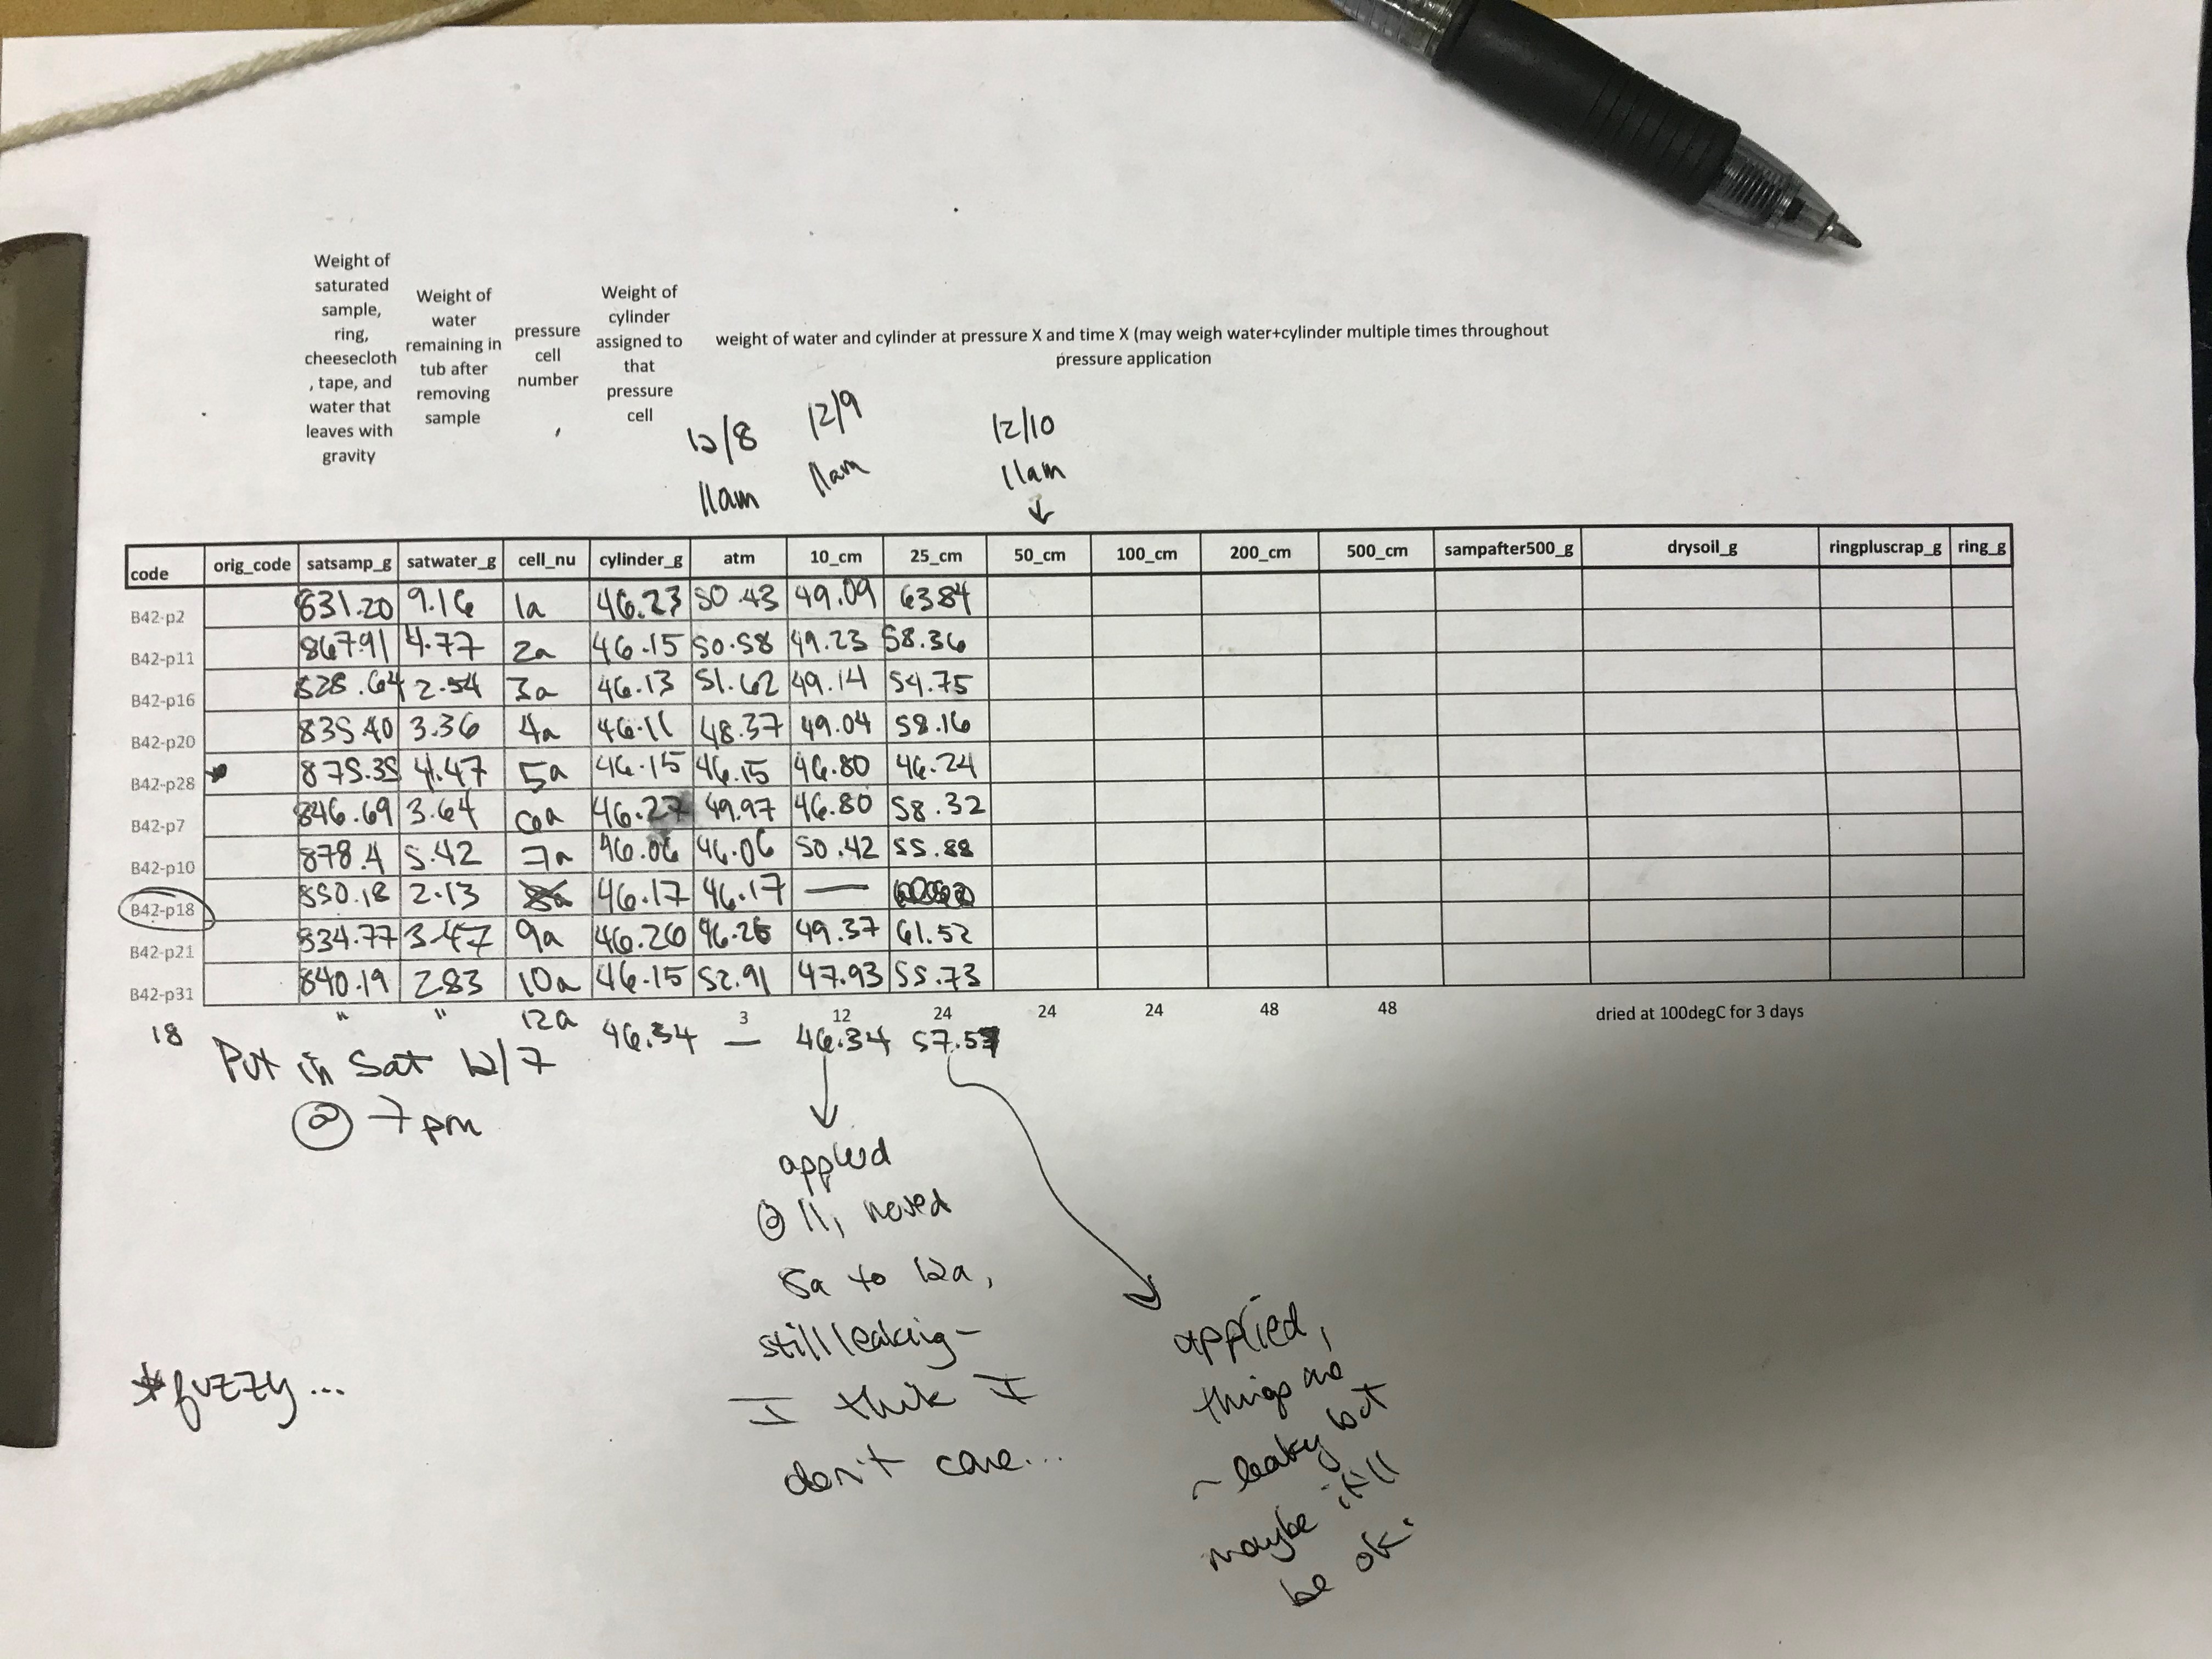 Weight of
saturated
sample,
ring,
cheesecloth
, tape, and
water that
leaves with
gravity
Weight of
water
remaining in
tub after
removing
sample
pressure
cell
number
Weight of
cylinder
assigned to
that
pressure
cell
weight of water and cylinder at pressure X and time X (may weigh water+cylinder multiple times throughout
pressure application
12/8
11am
12/9
11am
12/10
11am
code orig_code satsamp_g satwater_g cell_nu cylinder_g atm 10_cm 25_cm 50_cm 100_cm 200_cm 500_cm sampafter500_g drysoil_g ringpluscrap_g ring_g
B42-p2 831.20 9.16 1a 46.23 50.43 49.09 63.84
B42-p11 867.91 4.77 2a 46.15 50.58 49.23 58.36
B42-p16 828.64 2.54 3a 46.13 51.62 49.14 54.75
B42-p20 835.40 3.36 4a 46.11 48.37 49.04 58.16
B42-p28 875.35 4.47 5a 46.15 46.15 46.80 46.24
B42-p7 846.69 3.64 6a 46.27 49.97 46.80 58.32
B42-p10 878.4 5.42 7a 46.06 46.06 50.42 55.88
B42-p18 850.18 2.13 8a 46.17 46.17 —
B42-p21 834.77 3.47 9a 46.26 46.26 49.37 61.52
B42-p31 840.19 2.83 10a 46.15 52.91 47.93 55.73
3 12 24 24 24 48 48 dried at 100degC for 3 days
18 " " 12a 46.34 — 46.34 57.57
Put in Sat 12/7
@ 7pm
applied
@ 11, moved
8a to 12a,
still leaking -
I think I
don't care...
applied,
things are
~ leaky but
maybe it'll
be ok.
*fuzzy...